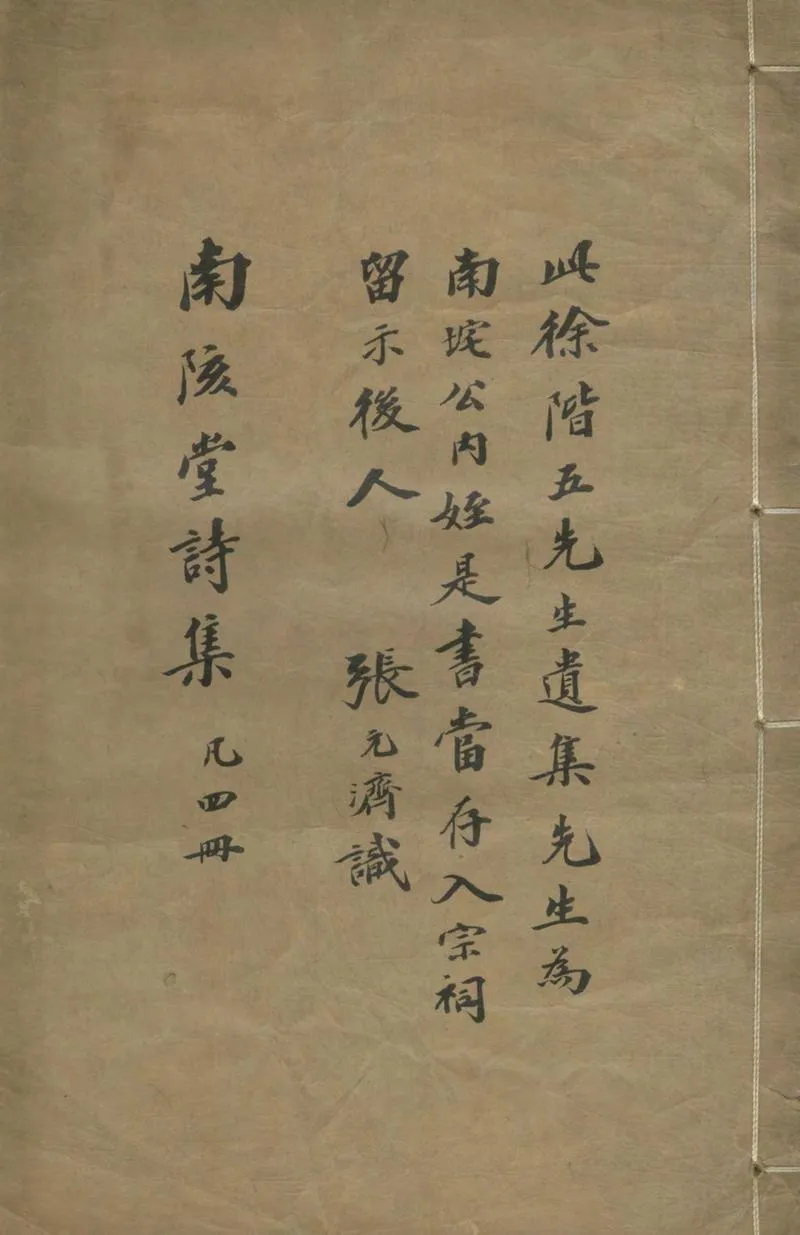 此徐階五先生遺集先生為
南垞公內姪是書當存入宗祠
留示後人 張元濟識
南陔堂詩集 凡四冊